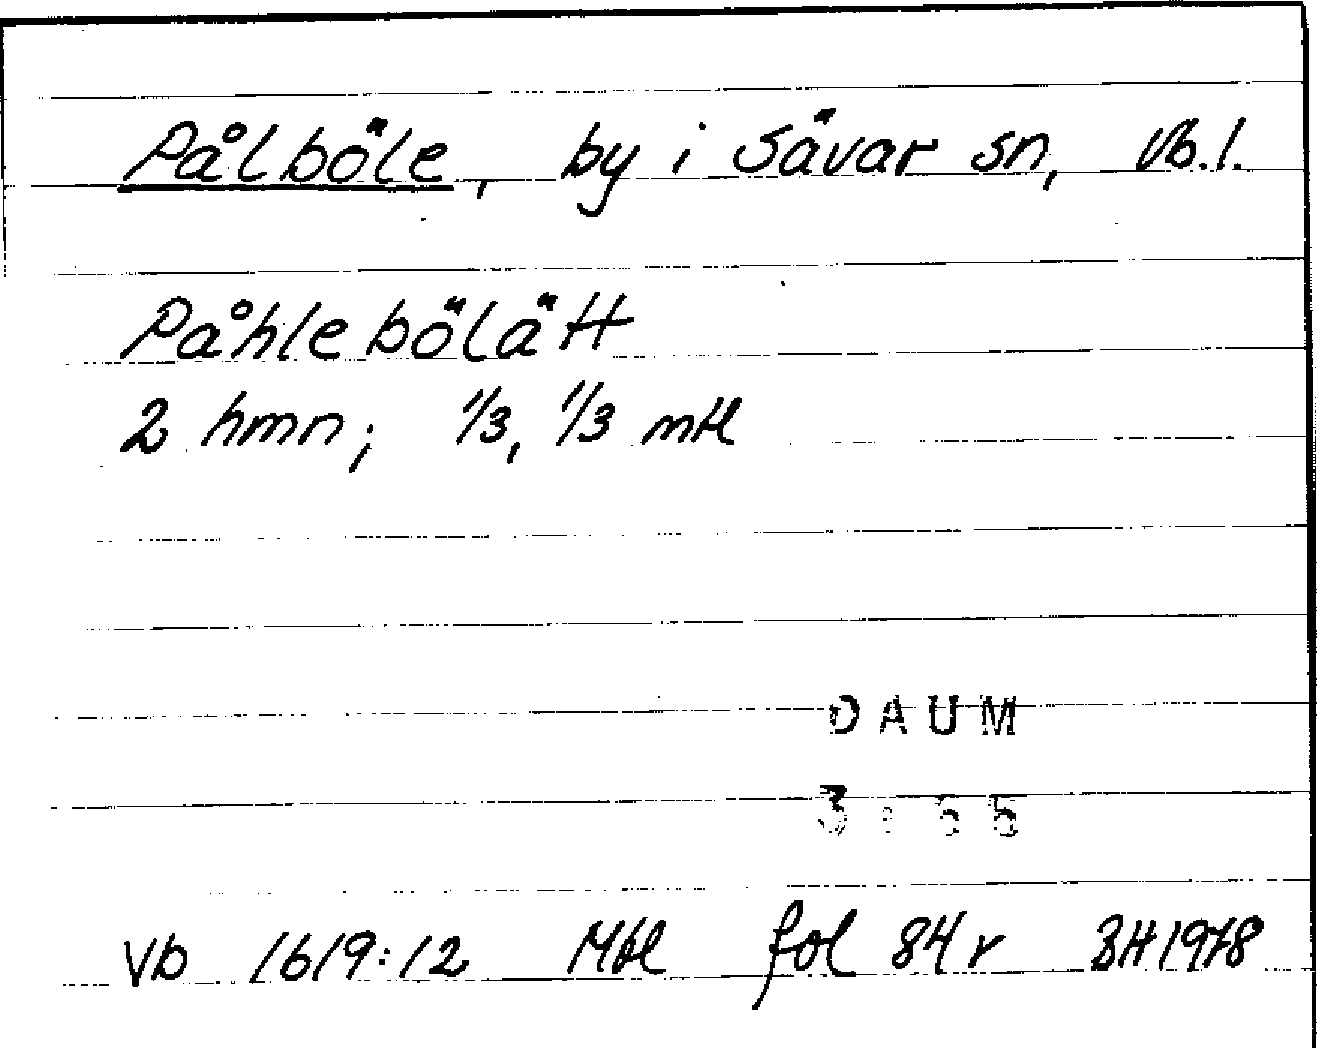 Pålböle, by i Sävar sn, Vb.l.
Påhlebölätt
2 hmn; 1/3, 1/3 mtl
DAUM
Vb 1619:12 Mtl fol 84r BH1978